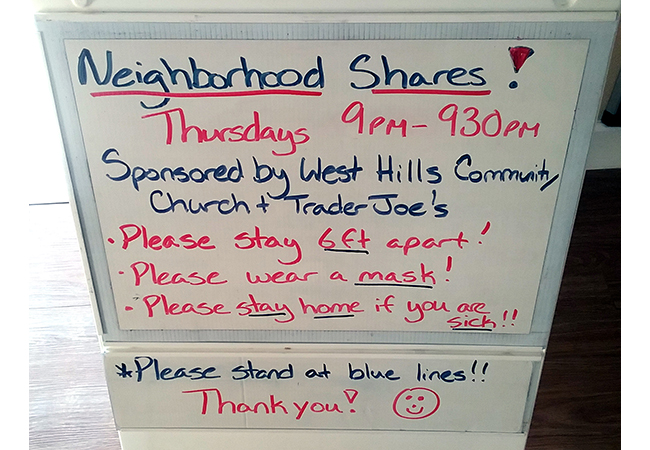 Neighborhood Shares!
Thursdays 9PM-930PM
Sponsored by West Hills Community
Church + Trader Joe's
• Please stay 6ft apart!
• Please wear a mask!
• Please stay home if you are
sick!!
*Please stand at blue lines!!
Thank you!